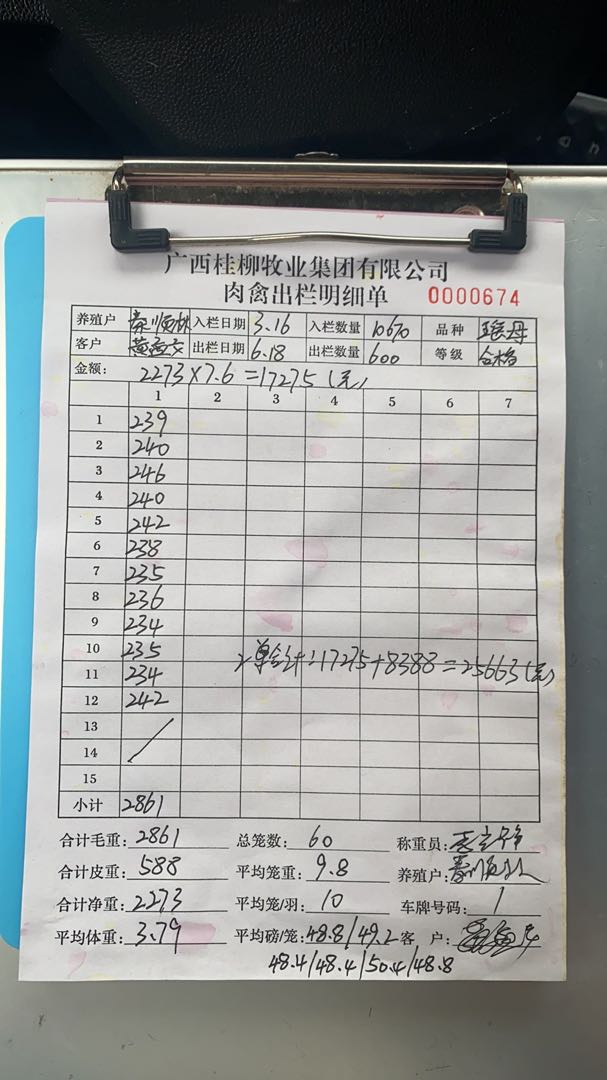 广西桂柳牧业集团有限公司
肉禽出栏明细单 0000674
养殖户 入栏日期 3.16 入栏数量 10670 品种
客户 出栏日期 6.18 出栏数量 600 等级 合格
金额: 2273×7.6=17275(元)
1 2 3 4 5 6 7
1 239
2 240
3 246
4 240
5 242
6 238
7 235
8 236
9 234
10 235
2单合计:17275+8388=25663(元)
11 234
12 242
13
14
15
小计 2861
合计毛重: 2861 总笼数: 60 称重员:
合计皮重: 588 平均笼重: 9.8 养殖户:
合计净重: 2273 平均笼/羽: 10 车牌号码: 1
平均体重: 3.79 平均磅/笼: 48.8/49.2 客 户:
48.4/48.4/50.4/48.8